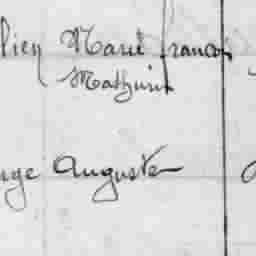 lien Marie françois
Mathurin
nge Auguste